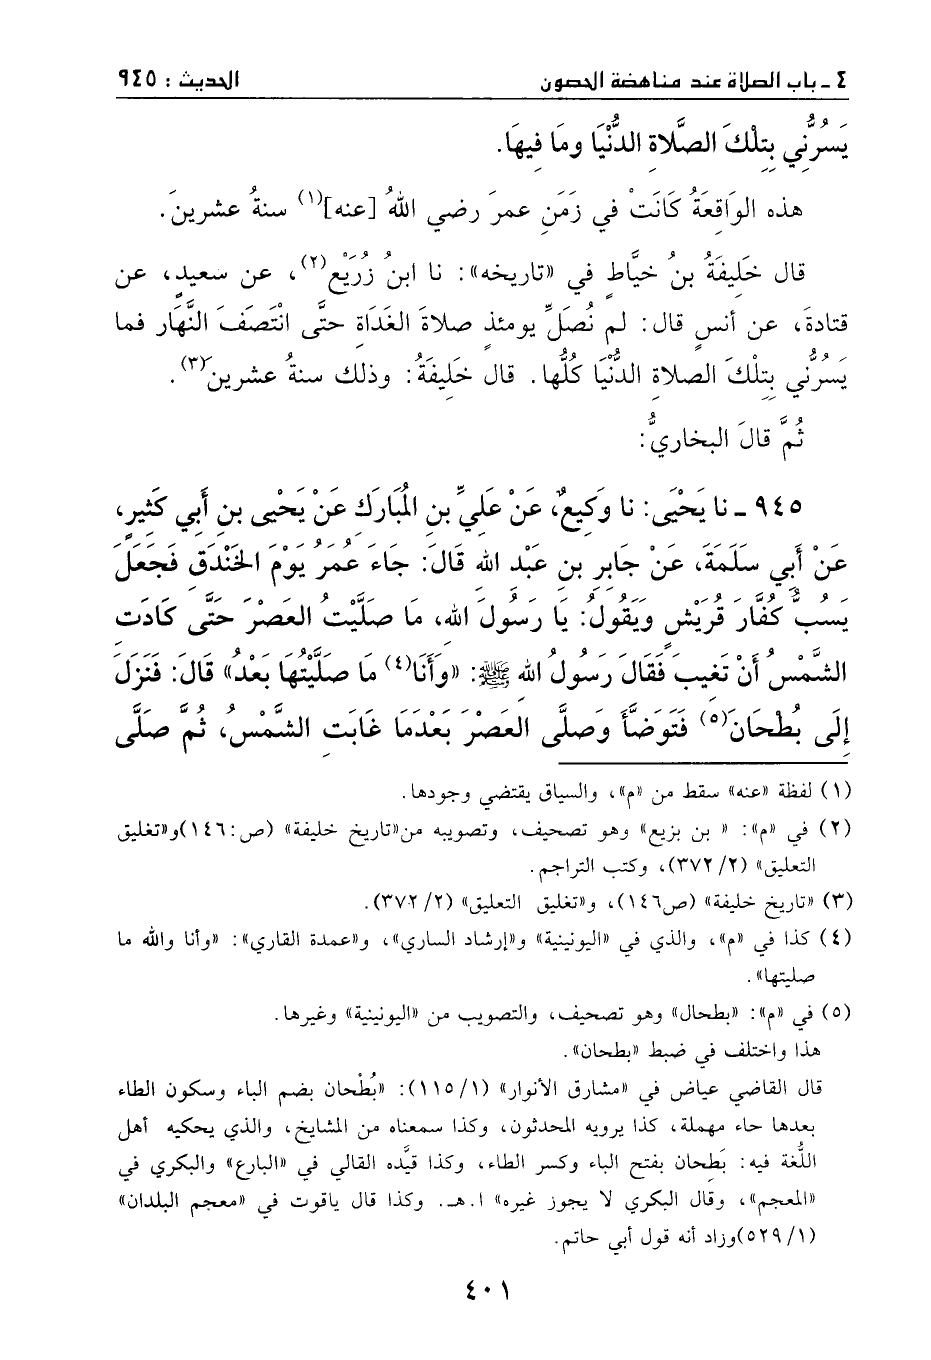 ٤ ـ باب الصلاة عند مناهضة الحصون الحديث : ٩٤٥
يَسُرُّنِي بِتِلْكَ الصَّلَاةِ الدُّنْيَا ومَا فِيهَا.
هذه الوَاقِعَةُ كَانَتْ في زَمَنِ عمرَ رضي اللهُ [عنه](١) سنةُ عشرينَ.
قال خَلِيفَةُ بنُ خيَّاطٍ في «تاريخه»: نا ابنُ زُرَيْع(٢)، عن سعيدٍ، عن
قتادةَ، عن أنسٍ قال: لم نُصَلِّ يومئذٍ صلاةَ الغَدَاةِ حتَّى انْتَصَفَ النَّهَار فما
يَسُرُّني بِتِلْكَ الصلاةِ الدُّنْيَا كُلُّها. قال خَلِيفَةُ: وذلك سنةُ عشرين(٣).
ثُمَّ قالَ البخاريُّ:
٩٤٥ ـ نا يَحْيَى: نا وَكِيعٌ، عَنْ عَلِيِّ بنِ المُبَارَكِ عَنْ يَحْيى بنِ أَبي كَثيرٍ،
عَنْ أَبِي سَلَمَةَ، عَنْ جَابِرِ بنِ عَبْدِ اللهِ قَالَ: جَاءَ عُمَرُ يَوْمَ الخَنْدَقِ فَجَعَلَ
يَسُبُّ كُفَّارَ قُرَيْشٍ ويَقُولُ: يَا رَسُولَ اللهِ، مَا صلَّيْتُ العَصْرَ حَتَّى كَادَتِ
الشَّمْسُ أَنْ تَغِيبَ فَقَالَ رَسُولُ اللهِ ﷺ: «وَأَنَا(٤) مَا صَلَّيْتُهَا بَعْدُ» قَالَ: فَنَزَلَ
إِلَى بُطْحَانَ(٥) فَتَوَضَّأَ وَصلَّى العَصْرَ بَعْدَمَا غَابَتِ الشَّمْسُ، ثُمَّ صلَّى
(١) لفظة «عنه» سقط من «م»، والسياق يقتضي وجودها.
(٢) في «م»: « بن بزيع» وهو تصحيف، وتصويبه من«تاريخ خليفة» (ص:١٤٦)و«تغليق
التعليق» (٢/ ٣٧٢)، وكتب التراجم.
(٣) «تاريخ خليفة» (ص١٤٦)، و«تغليق التعليق» (٢/ ٣٧٢).
(٤) كذا في «م»، والذي في «اليونينية» و«إرشاد الساري»، و«عمدة القاري»: «وأنا والله ما
صليتها».
(٥) في «م»: «بطحال» وهو تصحيف، والتصويب من «اليونينية» وغيرها.
هذا واختلف في ضبط «بطحان».
قال القاضي عياض في «مشارق الأنوار» (١/ ١١٥): «بُطْحان بضم الباء وسكون الطاء
بعدها حاء مهملة، كذا يرويه المحدثون، وكذا سمعناه من المشايخ، والذي يحكيه أهل
اللُّغة فيه: بَطِحان بفتح الباء وكسر الطاء، وكذا قيَّده القالي في «البارع» والبكري في
«المعجم»، وقال البكري لا يجوز غيره» ا.هـ. وكذا قال ياقوت في «معجم البلدان»
(١/ ٥٢٩)وزاد أنه قول أبي حاتم.
٤٠١